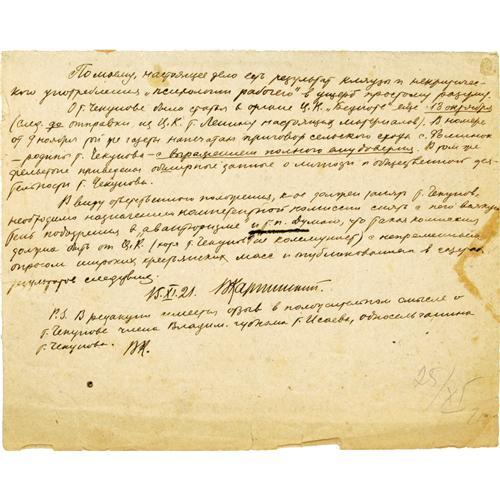 По моему, настоящее дело есть результат кляузы и некритичес-
кого употребления „психологии рабочего“ в ущерб простому разуму.
О т. Чекунове была статья в органе Ц.К. „Беднота“ еще 13 октября
(след. до отправки из Ц.К. т. Ленину настоящих материалов). В номере
от 9 ноября той же газеты напечатан приговор сельского схода с. Фоминок
– родины т. Чекунова – с выражением полного ему доверия. В том же
фельетоне приведены обширные данные о личности и общественной дея-
тельности т. Чекунова.
В виду ответственного положения, к-ое должен занять т. Чекунов,
необходимо назначением компетентной комиссии снять с него
подозрения в авантюризме и т.п. Думаю, что такая комиссия
должна быть от Ц.К. (хотя т. Чекунов не коммунист) с непременным
опросом широких крестьянских масс и опубликованием в
результатов следствия.
15.XI.21. В Карпинский.
P.S. В редакции имеется отзыв в положительном смысле о
т. Чекунове члена Владим. губкома т. Исаева, односельчанина
т. Чекунова. ВК.
25/XI